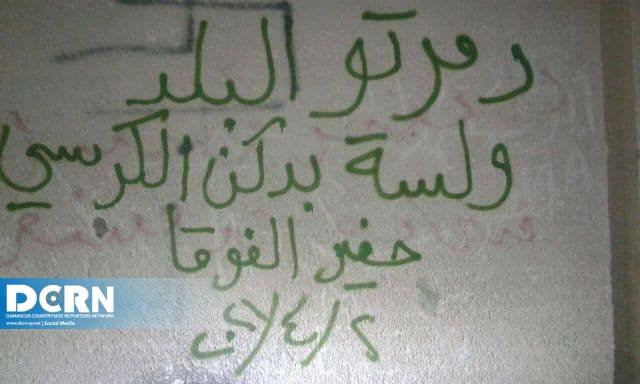 دمرتو البلد
ولسة بدكن الكرسي
حفير الفوقا
٢/٤/
DCRN
DAMASCUS COUNTRYSIDE REPORTERS NETWORK
www.dcrn-sy.net | Social Media